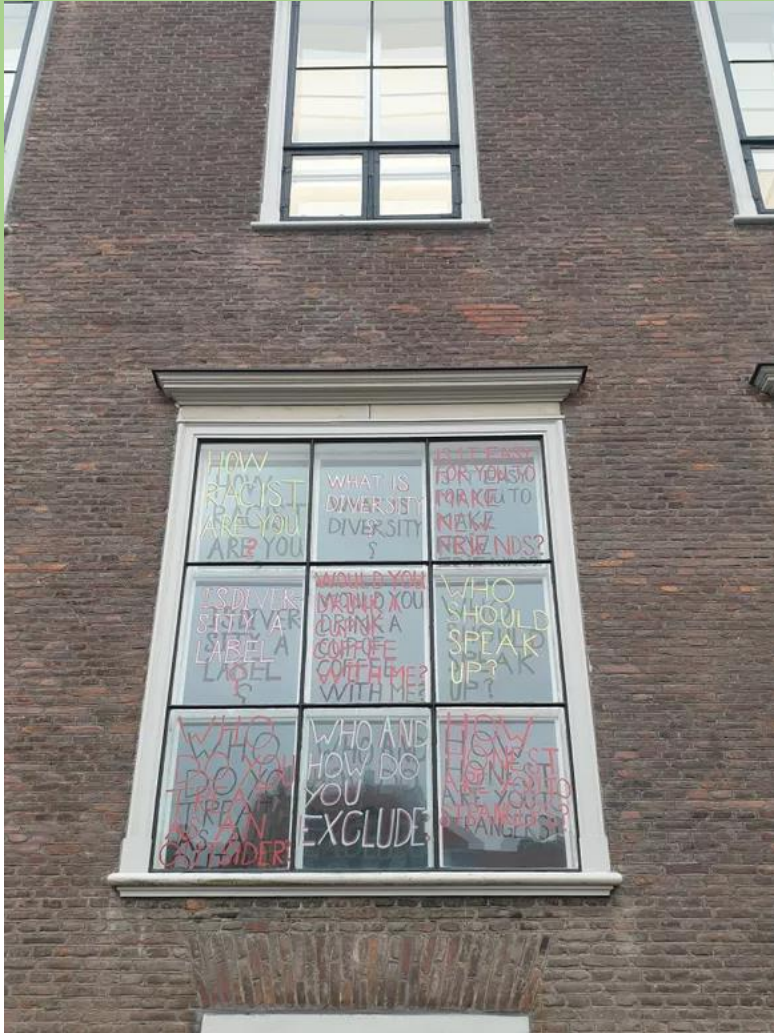 HOW
RACIST
ARE YOU
?
WHAT IS
DIVERSITY
?
IS IT EASY
FOR YOU TO
MAKE
NEW
FRIENDS?
IS DIVER-
SITY A
LABEL
?
WOULD YOU
DRINK A
CUP OF
COFFEE
WITH ME?
WHO
SHOULD
SPEAK
UP?
WHO
DO YOU
TREAT
AS AN
OUTSIDER?
WHO AND
HOW DO
YOU
EXCLUDE
HOW
HONEST
ARE YOU TO
STRANGERS?